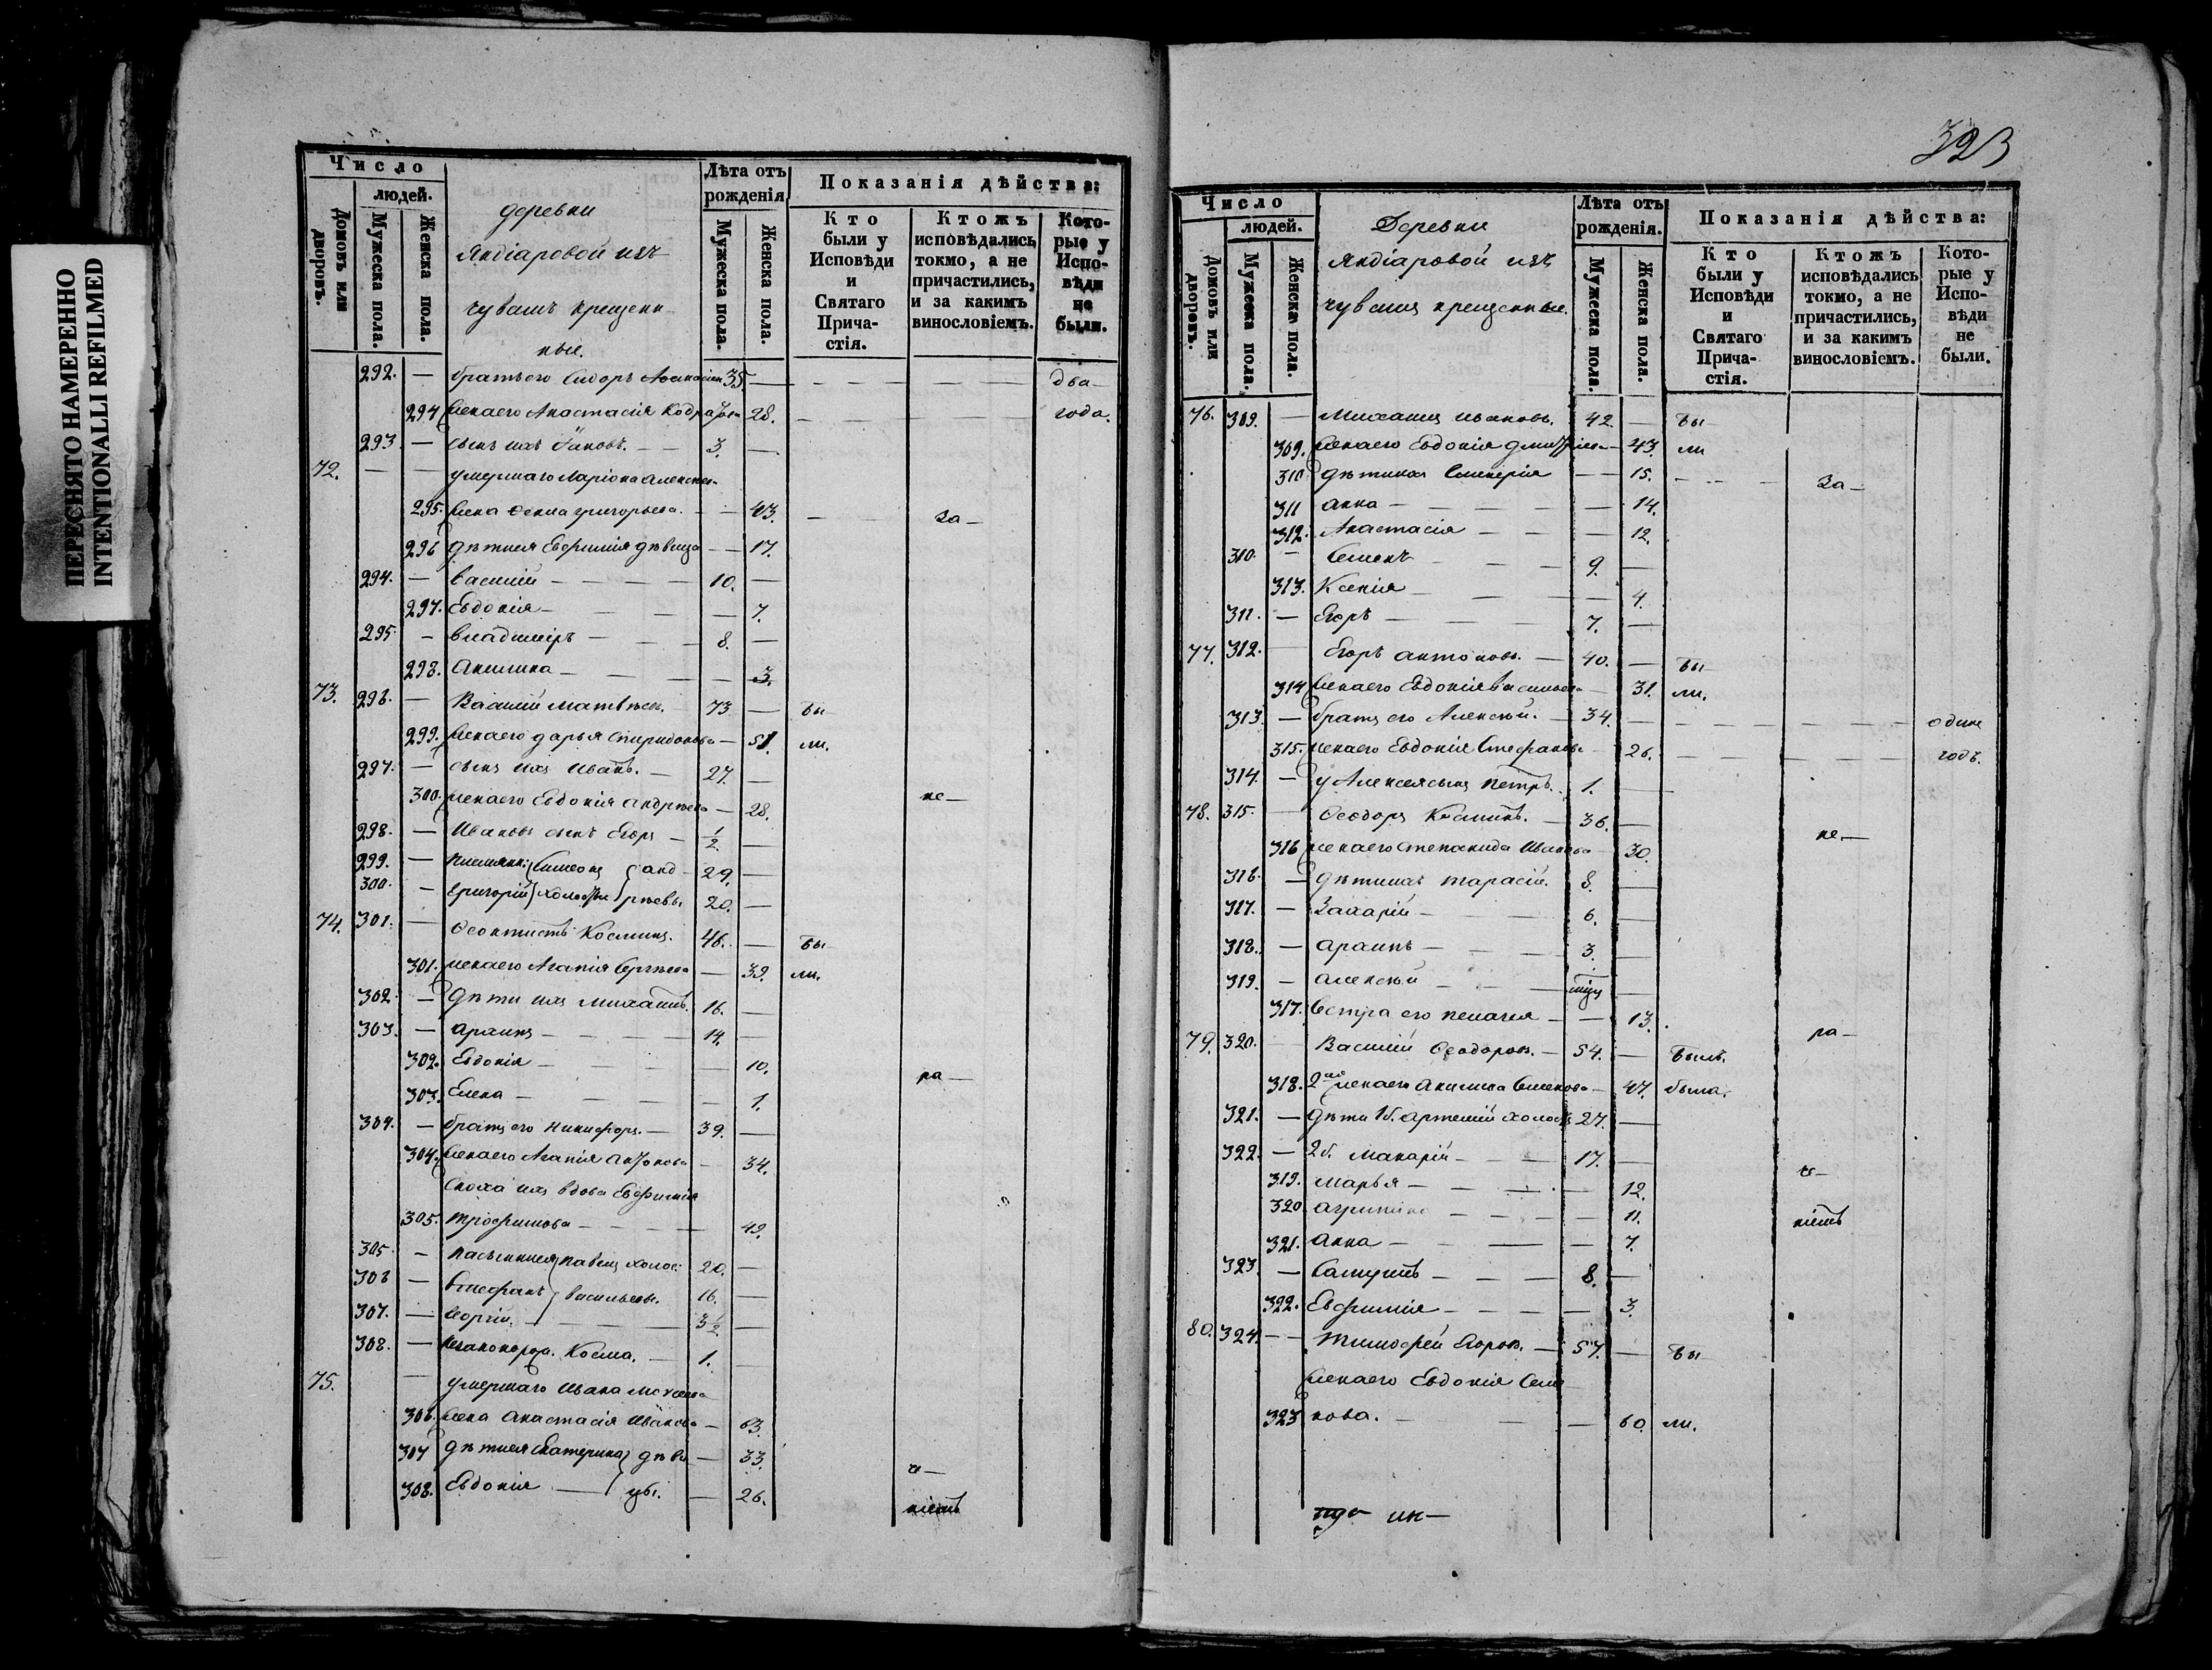 ПЕРЕСНЯТО НАМЕРЕННО
INTENTIONALLI REFILMED
Число
людей.
Домовъ или дворовъ.
Мужеска пола.
Женска пола.
деревни
Яндіаровой изъ
чувашъ крещен-
ные.
Лѣта отъ рожденія
Мужеска пола.
Женска пола.
Показанія дѣйства:
Кто были у Исповѣди и Святаго Прича-стія.
Ктожъ исповѣдались токмо, а не причастились, и за какимъ винословіемъ.
Кото-рые у Испо-вѣди не были.
292. — братъ его Сидоръ 35 — — — — — два
294 жена его Анастасія 28. — — — — года.
293 — сынъ ихъ Іаковъ. — — 3. —
72. — — умершаго Ларіона
295. жена Ѳекла Григорьева. — — 43. — — За —
296 дѣти ея Евфимія дѣвица — — 17.
294. — Василій — — — — 10. —
297. Евдокія — — — — — 7.
295. — Владиміръ — — — 8. —
298. Акилина — — — — — 3.
73. 296. — Василій Матвѣев. 73 — бы
299. жена его Дарья Спиридонова — 51. ли.
297. — сынъ ихъ Иванъ. — 27. —
300. жена его Евдокія Андреева — 28. не —
298. — Ивановъ сынъ Егоръ — 1/2. —
299. — племянн: Симеонъ анд- 29. —
300. — Григорій холостые рѣевы. 20. —
74. 301. — Ѳеоктистъ Космин. 46. — бы
301. жена его Агапія Сергѣева — 39. ли.
302. — Дѣти ихъ Михаилъ. 16. —
303. — Ираклъ — — — 14. —
302. Евдокія — — — — 10. ра —
303. Елена — — — — — 1.
304. — братъ его Никифоръ. — 39. —
304. жена его Агапія Антонова — 34.
Сноха ихъ вдова Евфимія
305. Трофимова — — — — 42.
305 — пасынки ея Павелъ холос: 20. —
306 — Стефанъ Васильевы. 16. —
307. — Георгій. — — — 3 1/2. —
308. — Косма. — 1. —
75. — умершаго Ивана
306. жена Анастасія Иванова — 63.
307 дѣти ея Екатерина дѣви — 33. ч —
308. Евдокія — цы. — 26. ніемъ
323
Число
людей.
Домовъ или дворовъ.
Мужеска пола.
Женска пола.
Деревни
Яндіаровой изъ
чувашъ крещенные.
Лѣта отъ рожденія.
Мужеска пола.
Женска пола.
Показанія дѣйства:
Кто были у Исповѣди и Святаго Прича-стія.
Ктожъ исповѣдались токмо, а не причастились, и за какимъ винословіемъ.
Кото-рые у Испо-вѣди не были.
76. 309. — Михаилъ Ивановъ. 42. — бы
309. жена его Евдокія Дмитріева — 43. ли
310 дѣти ихъ Гликерія — — 15. — — — За —
311 Анна — — — — — 14.
312. Анастасія — — — 12.
310 — Семенъ — — — 9. —
313. Ксенія — — — — 4.
311. — Егоръ — — — 7. —
77. 312. — Егоръ Антонов. — 40. — бы
314 жена его Евдокія Васильева — 31. ли.
313. — братъ его Алексѣй. — 34. — — — — — — — одинъ
315. жена его Евдокія Стефанова — 26. — — — — — годъ.
314. — у Алексея сынъ Петръ. 1. —
78. 315. — Ѳеодоръ Космин. — 36. — не —
316 жена его Степанида Иванова 30.
316. — дѣти ихъ Тарасій. 8. —
317. — Захарій — — — 6. —
318. — — — — 3. —
319. — Алексѣй — — —
317. Сестра его Пелагея — — 13. ра —
79. 320. — Василій Ѳеодоров. — 54. — былъ.
318. 2я жена его Акилина Семенова — 47. была.
321. — дѣти 1б. Артемій холостъ 27. —
322. — 2б. Макарій — — — 17. — ч —
319. Марья — — — — — 12.
320 — — — — 11. ніемъ
321. Анна — — — — — 7.
323. — Самуилъ — — — 8. —
322. Евфимія — — — — — 3.
80. 324. — — Тимофей Егоров. — 57. — бы
жена его Евдокія Семе
323 нова. — — — 60. ли.